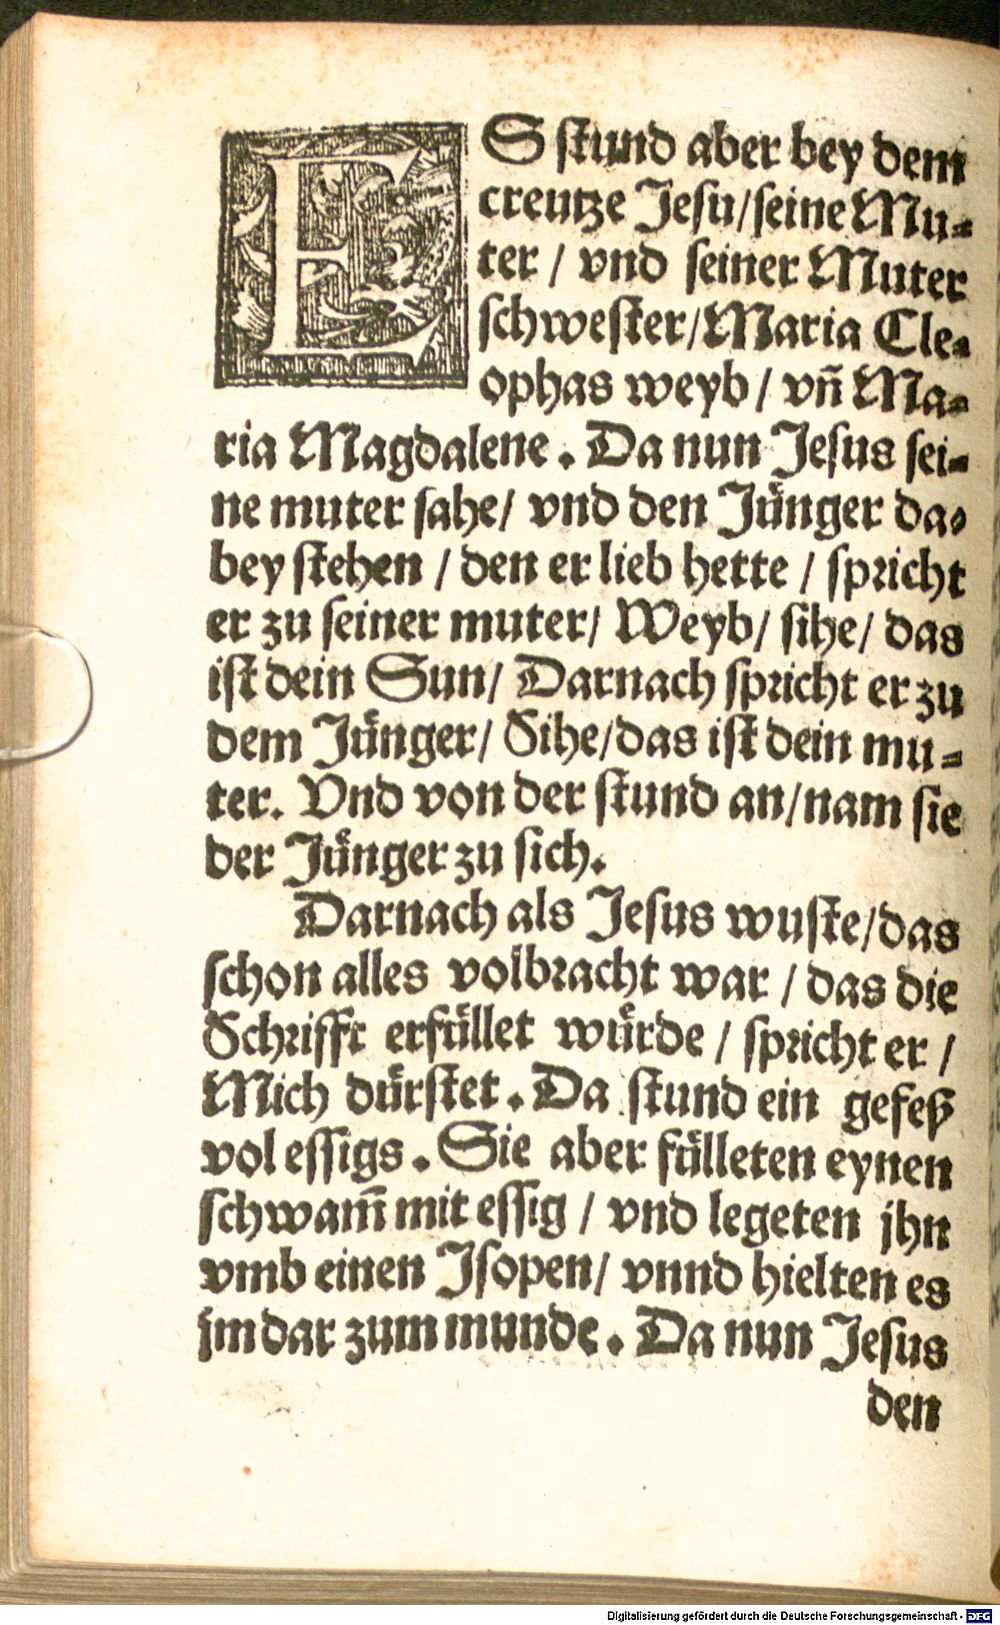 ES stund aber bey dem
creutze Jesu/seine Mu-
ter / vnd seiner Muter
schwester/Maria Cle-
ophas weyb / vñ Ma-
ria Magdalene. Da nun Jesus sei-
ne muter sahe/ vnd den Jünger da-
bey stehen / den er lieb hette / spricht
er zu seiner muter/ Weyb/ sihe/ das
ist dein Sun/ Darnach spricht er zu
dem Jünger/ Sihe/das ist dein mu-
ter. Vnd von der stund an/nam sie
der Jünger zu sich.
Darnach als Jesus wuste/das
schon alles volbracht war / das die
Schrifft erfüllet würde / spricht er /
Mich dürstet. Da stund ein gefeß
vol essigs. Sie aber fülleten eynen
schwam̃ mit essig / vnd legeten jhn
vmb einen Jsopen/ vnnd hielten es
jm dar zum munde. Da nun Jesus
den
Digitalisierung gefördert durch die Deutsche Forschungsgemeinschaft - DFG